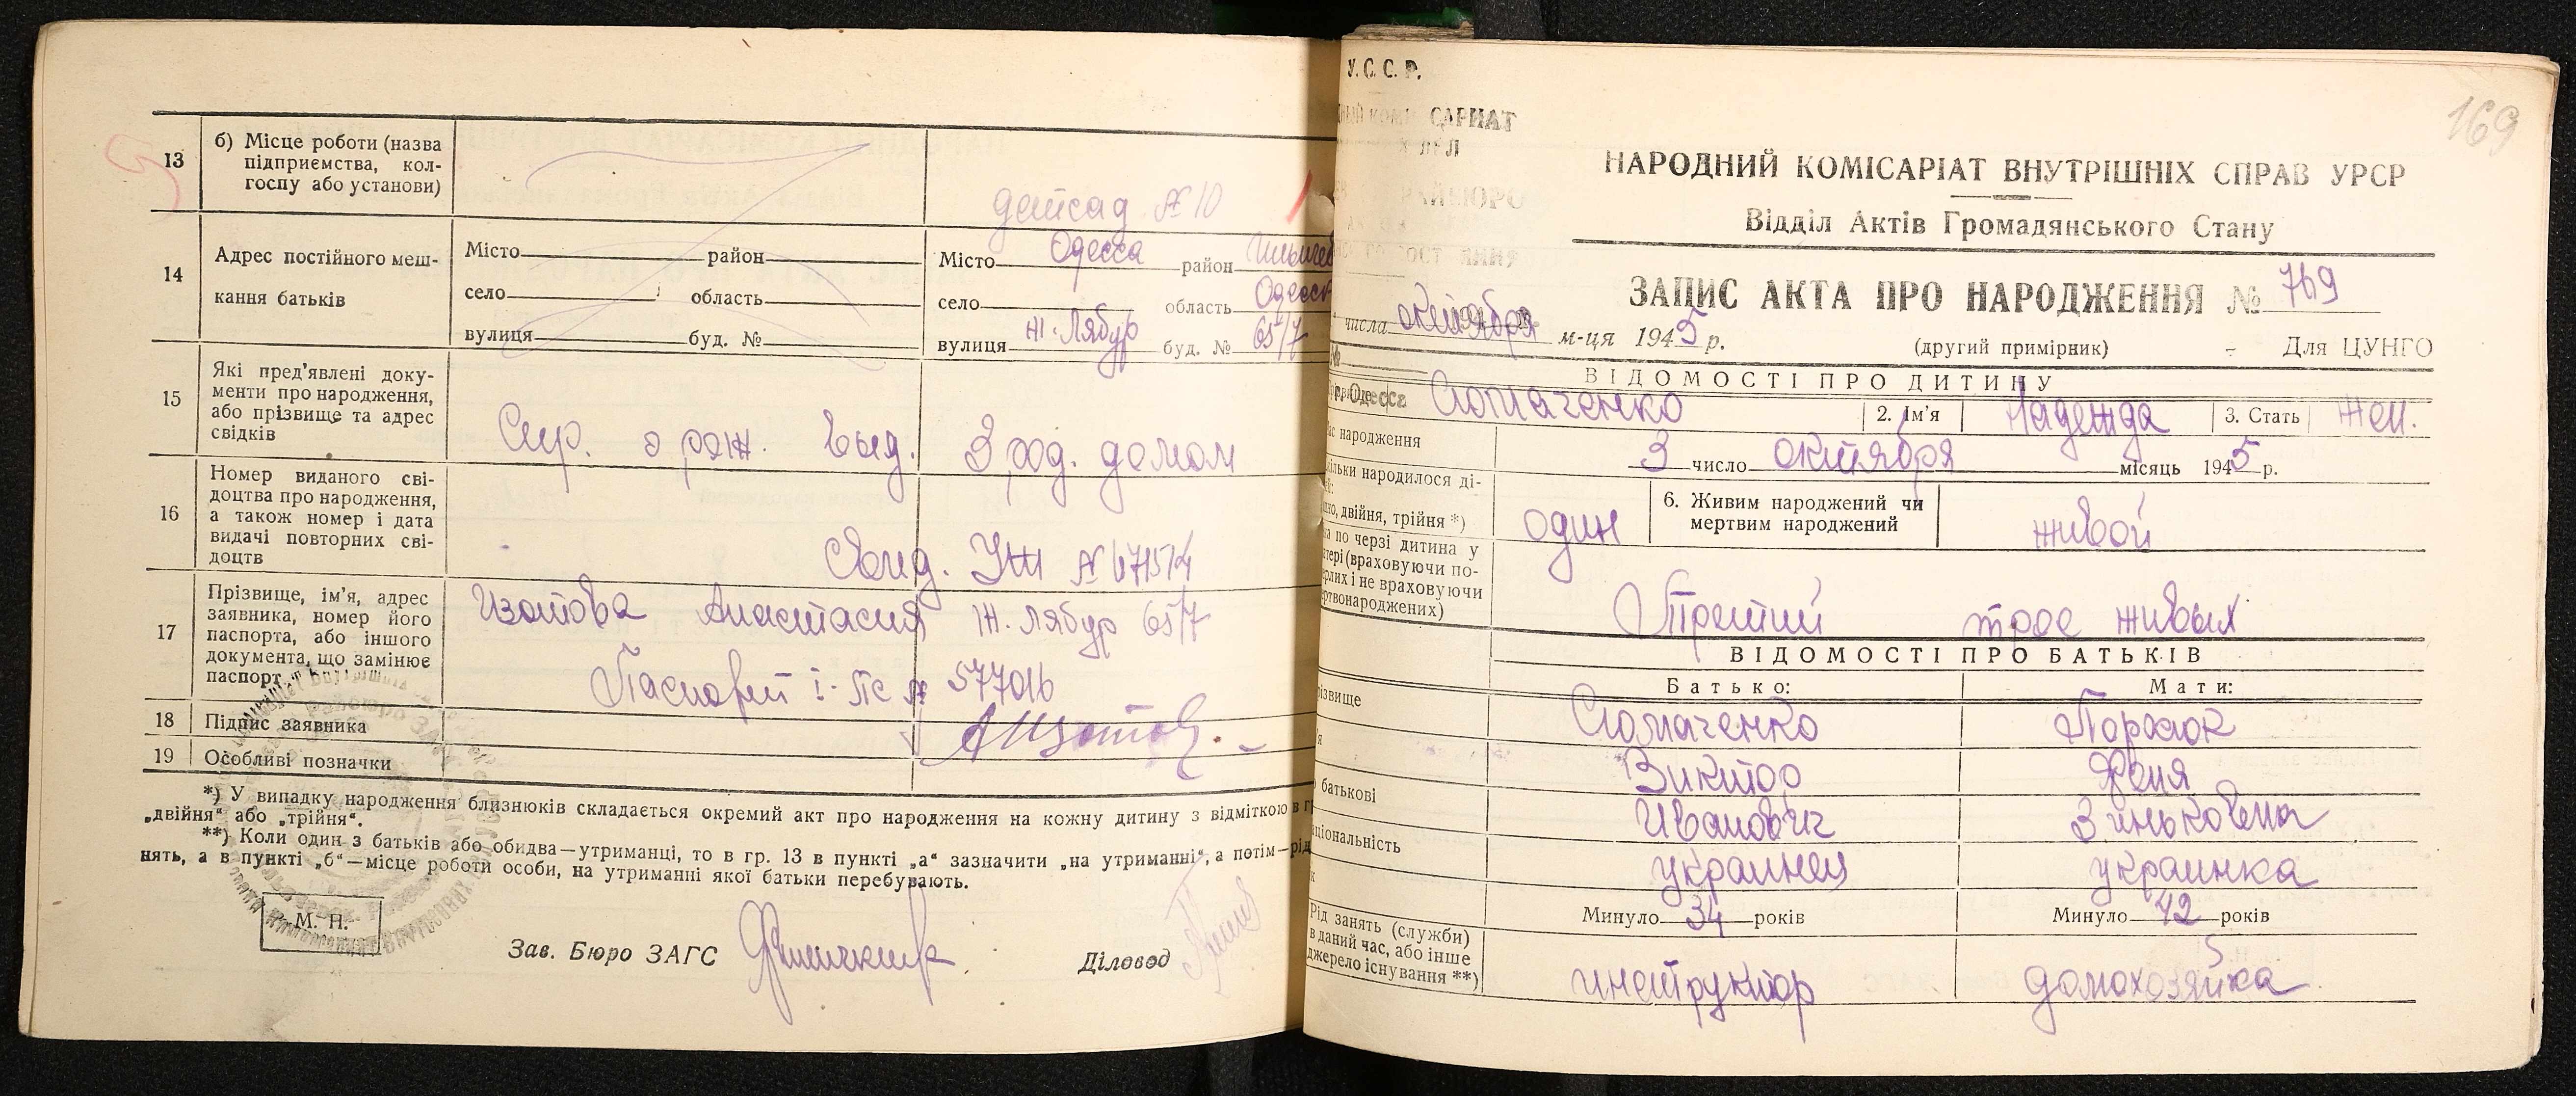 13
б) Місце роботи (назва
підприємства, кол-
госпу або установи)
детсад № 10
14
Адрес постійного меш-
кання батьків
Місто район
село область
вулиця буд. №
Місто Одесса район Ильичев
село область Одесск
вулиця Ж. Лябур буд. № 65/7
15
Які пред’явлені доку-
менти про народження,
або прізвище та адрес
свідків
Спр. о рож. выд. 3 род. домом
16
Номер виданого сві-
доцтва про народження,
а також номер і дата
видачі повторних сві-
доцтв
Свид. УЖ №
17
Прізвище, ім’я, адрес
заявника, номер його
паспорта, або іншого
документа, що замінює
паспорт
Изотова Анастасия Ж. Лябур 65/7
Паспорт № 577016
18 Підпис заявника
АИзотов
19 Особливі позначки
*) У випадку народження близнюків складається окремий акт про народження на кожну дитину з відміткою в г
„двійня“ або „трійня“.
**) Коли один з батьків або обидва—утриманці, то в гр. 13 в пункті „а“ зазначити „на утриманні“, а потім—рід
нять, а в пункті „б“—місце роботи особи, на утриманні якої батьки перебувають.
М. Н.
Зав. Бюро ЗАГС
Діловод
У.С.С.Р.
САРИАТ
РАЙБЮРО
169
НАРОДНИЙ КОМІСАРІАТ ВНУТРІШНІХ СПРАВ УРСР
Відділ Актів Громадянського Стану
ЗАПИС АКТА ПРО НАРОДЖЕННЯ № 769
числа октября м-ця 1945 р.
(другий примірник) - Для ЦУНГО
№
ВІДОМОСТІ ПРО ДИТИНУ
Одесса
2. Ім’я Надежда 3. Стать жен.
ас народження
3 число октября місяць 1945 р.
ільки народилося ді-
но, двійня, трійня *)
один
6. Живим народжений чи
мертвим народжений
живой
а по черзі дитина у
тері (враховуючи по-
рлих і не враховуючи
ртвонароджених)
Третий трое живых
ВІДОМОСТІ ПРО БАТЬКІВ
Батько: Мати:
ізвище
Виктор Феня
батькові Иванович Зиньковена
ціональність украинец украинка
Минуло 34 років Минуло 42 років
Рід занять (служби)
в даний час, або інше
джерело існування **)
инструктор домохозяйка